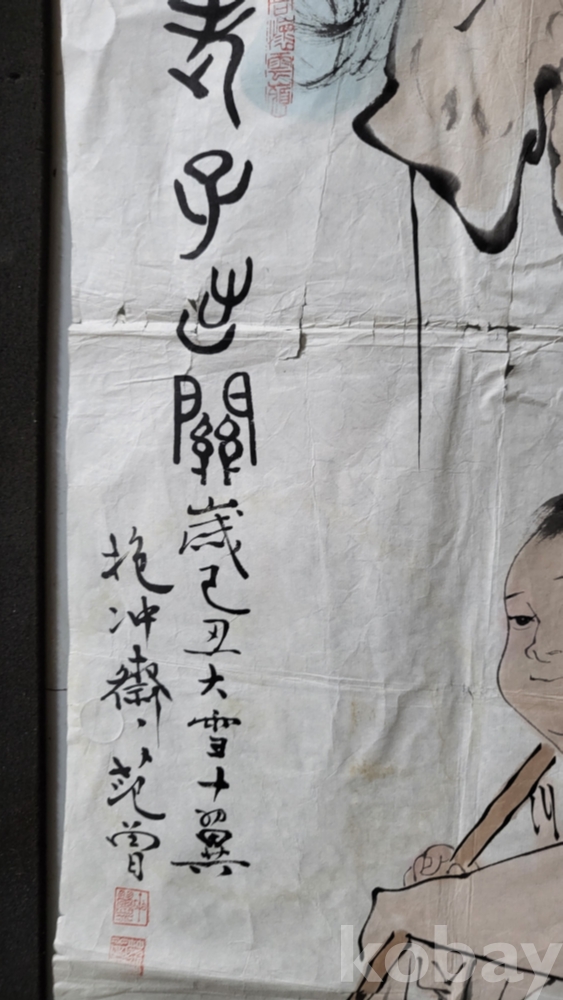 老子出關歲己丑大雪十翼
抱冲齋范曾
kobay